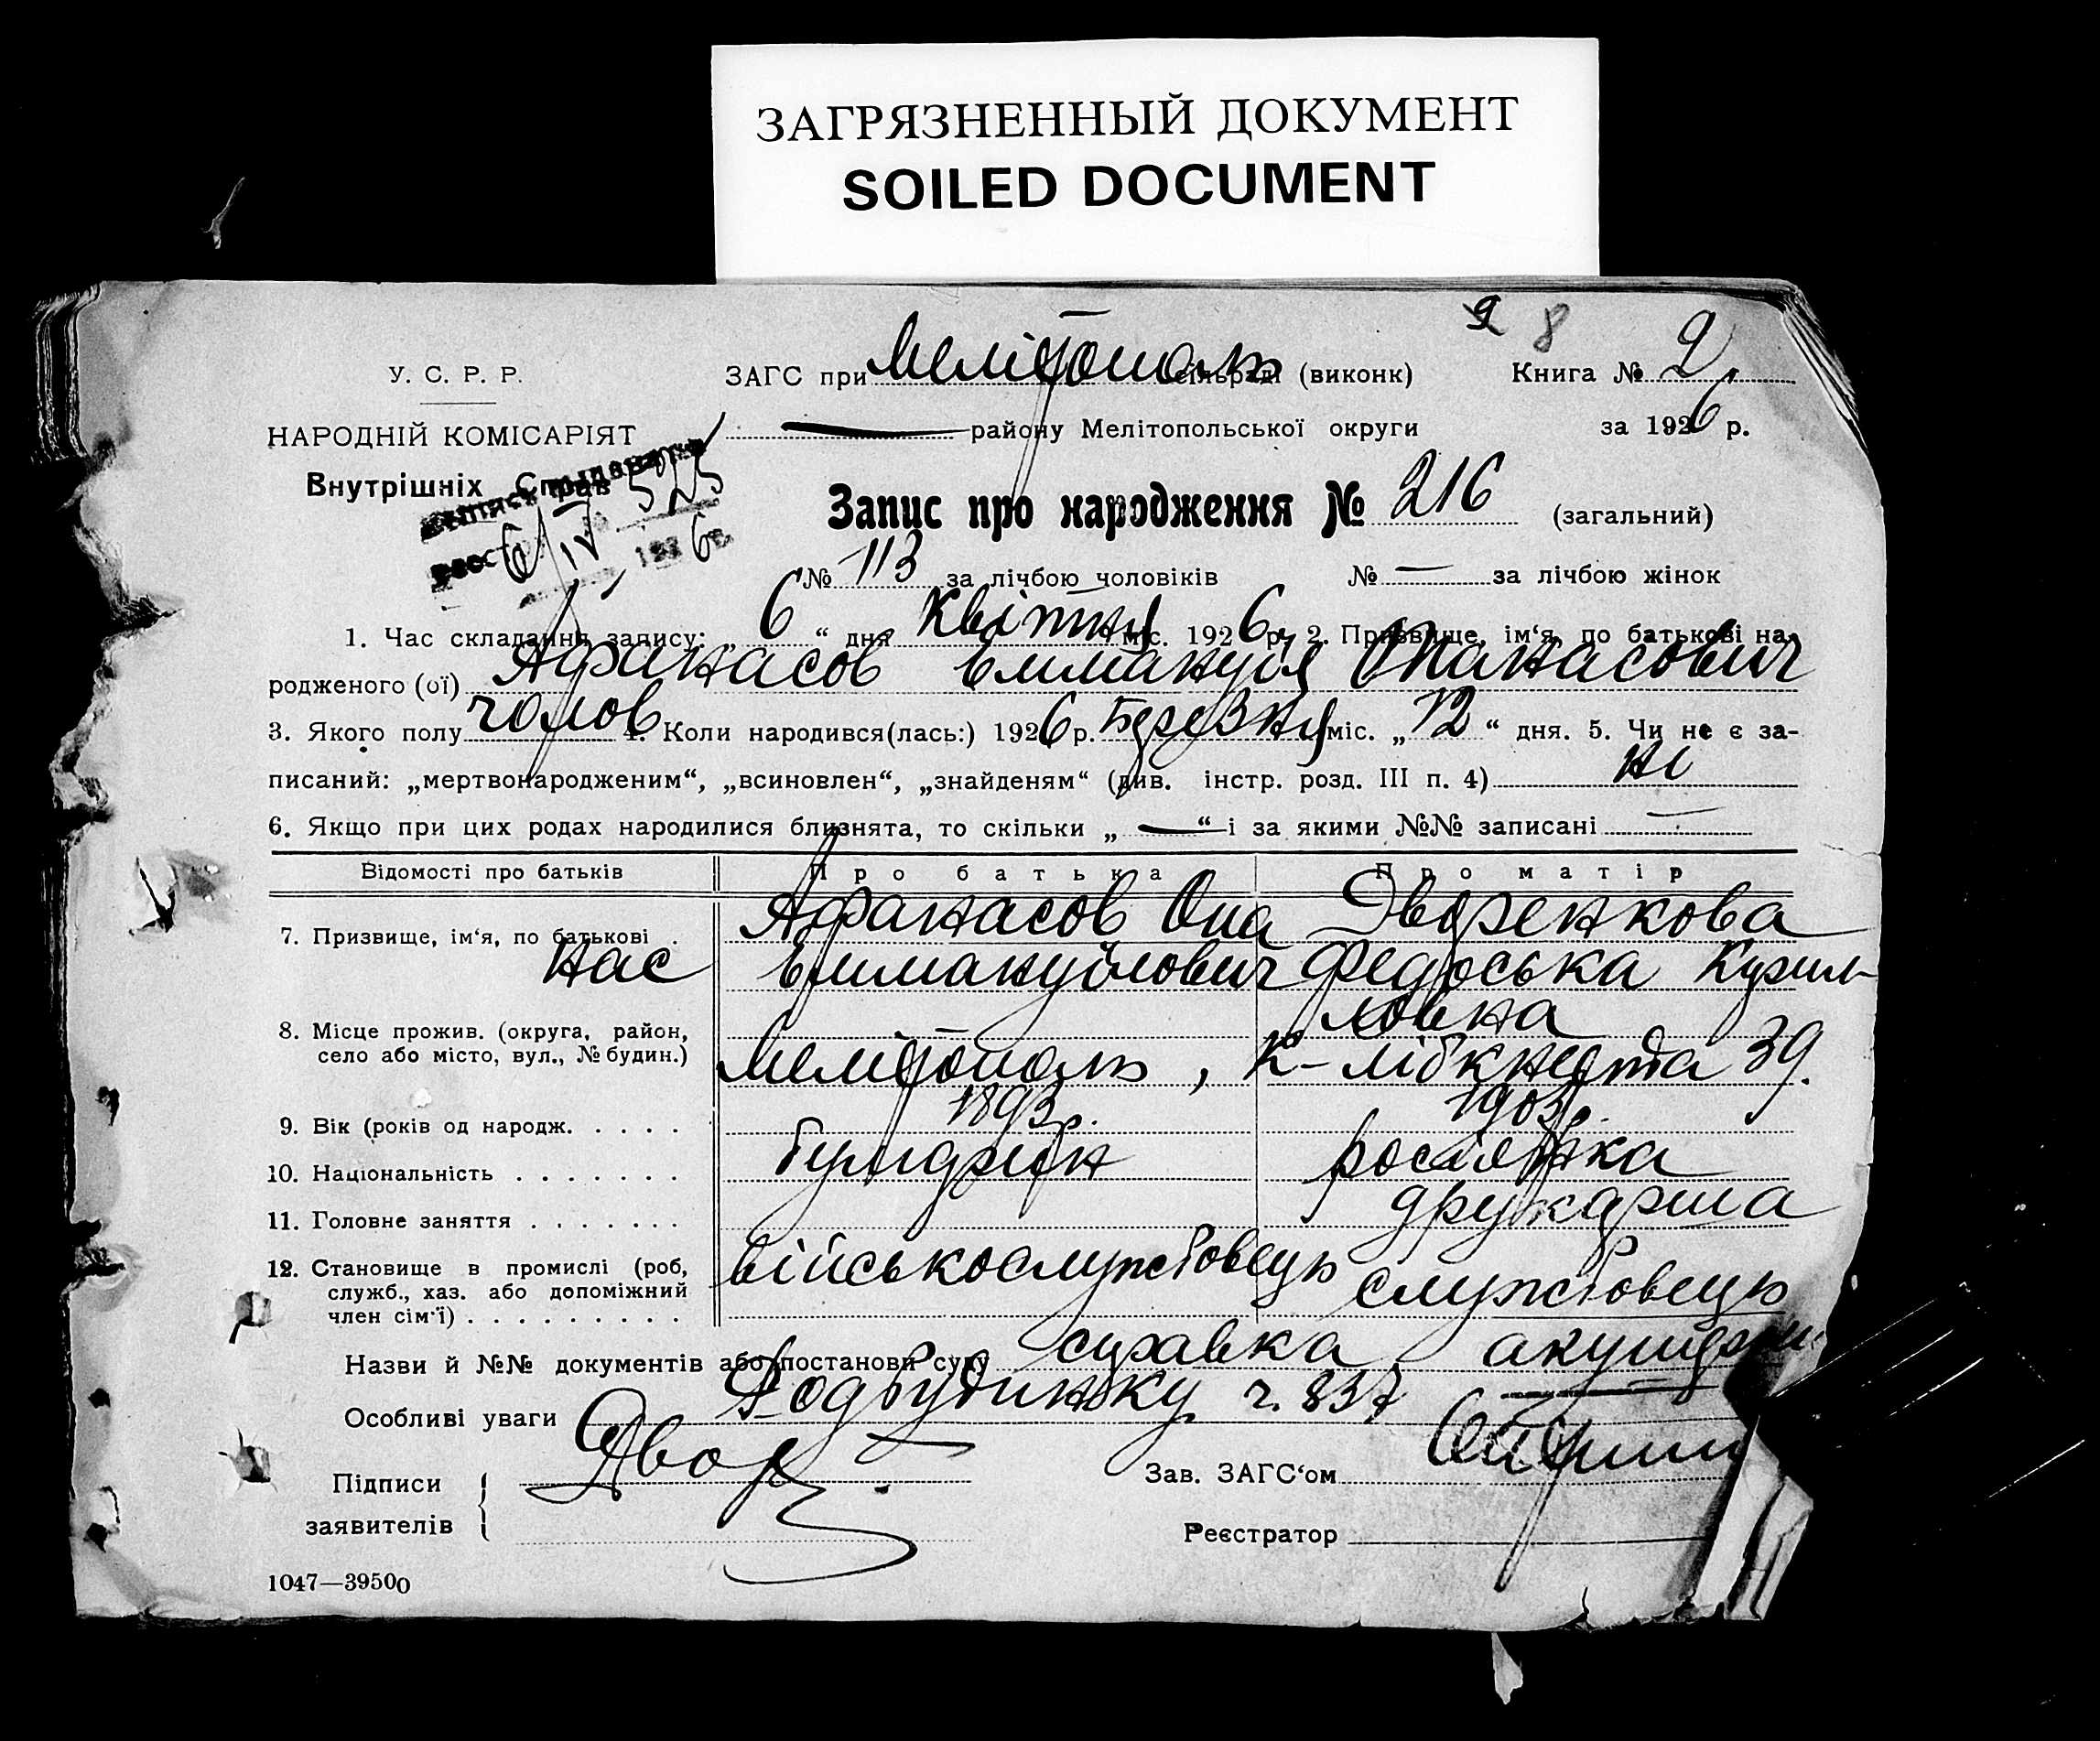 ЗАГРЯЗНЕННЫЙ ДОКУМЕНТ
SOILED DOCUMENT
9 8
У. С. Р. Р.
ЗАГС при Мелітополь сільраді (виконк) Книга № 2
НАРОДНІЙ КОМІСАРІЯТ
— району Мелітопольської округи за 1926 р.
Внутрішніх Справ
6/IV 1926 р.
Запис про народження № 216 (загальний)
№ 113 за лічбою чоловіків № — за лічбою жінок
1. Час складання запису: „6“ дня Квітня міс. 1926 р. 2. Призвище, ім‘я, по батькові на-
родженого (ої) Афанасов Еммануїл Опанасович
3. Якого полу чолов 4. Коли народився(лась:) 1926 р. Березня міс. „12“ дня. 5. Чи не є за-
писаний: „мертвонародженим“, „всиновлен“, „знайденям“ (див. інстр. розд. III п. 4) ні
6. Якщо при цих родах народилися близнята, то скільки „—“ і за якими №№ записані —
Відомості про батьків Про батька Про матір
7. Призвище, ім‘я, по батькові . Афанасов Опа Дворенкова
нас Еммануїлович Федоська Кирил-
ловна
8. Місце прожив. (округа, район,
село або місто, вул., № будин.) Мелітополь, К-Лібкнехта 39.
9. Вік (років од народж. . . . . 1893 р. 1903 р.
10. Національність . . . . . . . росіянка
11. Головне заняття . . . . . . . друкарша
12. Становище в промислі (роб, військослужбовець службовець
служб., хаз. або допоміжний
член сім‘ї) . . . . . . . . .
Назви й №№ документів або постанови суду справка акушерки
Особливі уваги Родбудинку ч. 837
Підписи Двор
заявителів
Зав. ЗАГС‘ом
Реєстратор
1047—39500